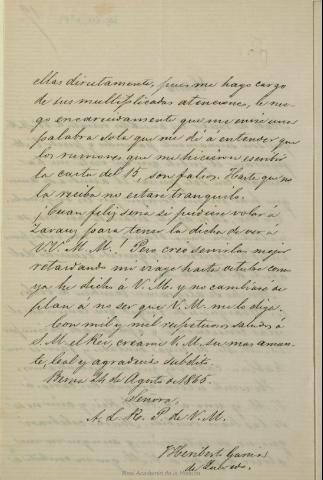 ellas directamente, pues me hago cargo
de sus multiplicadas atenciones, le rue-
go encarecidamente que me envie una
palabra sola que me dé á entender que
los rumores que me hicieron escribir
la carta del 15, son falsos. Hasta que no
la reciba no estaré tranquilo.
¡Cuan feliz seria si pudiese volar á
Zarauz para tener la dicha de ver á
VV. M.M.! Pero creo servirlas mejor
retardando mi viaje hasta octubre como
ya he dicho á V.M. y no cambiaré de
plan á no ser que V.M. me lo diga.
Con mil y mil respetuosos saludos á
S.M. el Rei, creame V.M. su mas aman-
te, leal y agradecido súbdito.
Berna 24 de Agosto de 1865.
Señora,
A. L. R. P. de V.M.
Heriberto Garcia
de Quevedo.
Real Academia de la Historia